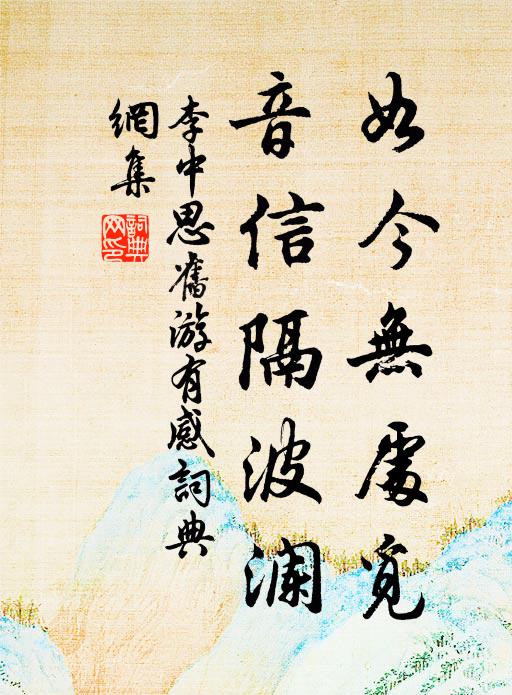 如今無處覓
音信隔波瀾
李中思舊游有感詞典
網集
詞典網印